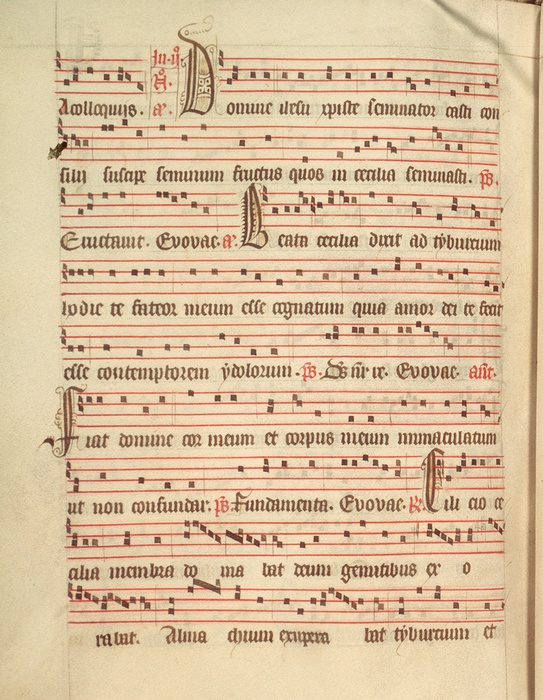 In. ij. no
A. Domine
A colloquijs. a. Domine ihesu xpiste seminator casti con
silij suscipe seminum fructus quos in cecilia seminasti. ps.
Eructauit. Evovae. a. Beata cecilia dixit ad tyburcium
hodie te fateor meum esse cognatum quia amor dei te fecit
esse contemptorem ydolorum. ps. Ds nr re. Evovae. ant.
Fiat domine cor meum et corpus meum immaculatum
ut non confundar. ps. Fundamenta. Evovae. R. Cilicio ce
cilia membra do ma bat deum gemitibus ex o
rabat. Alma chium exupera bat tyburcium et